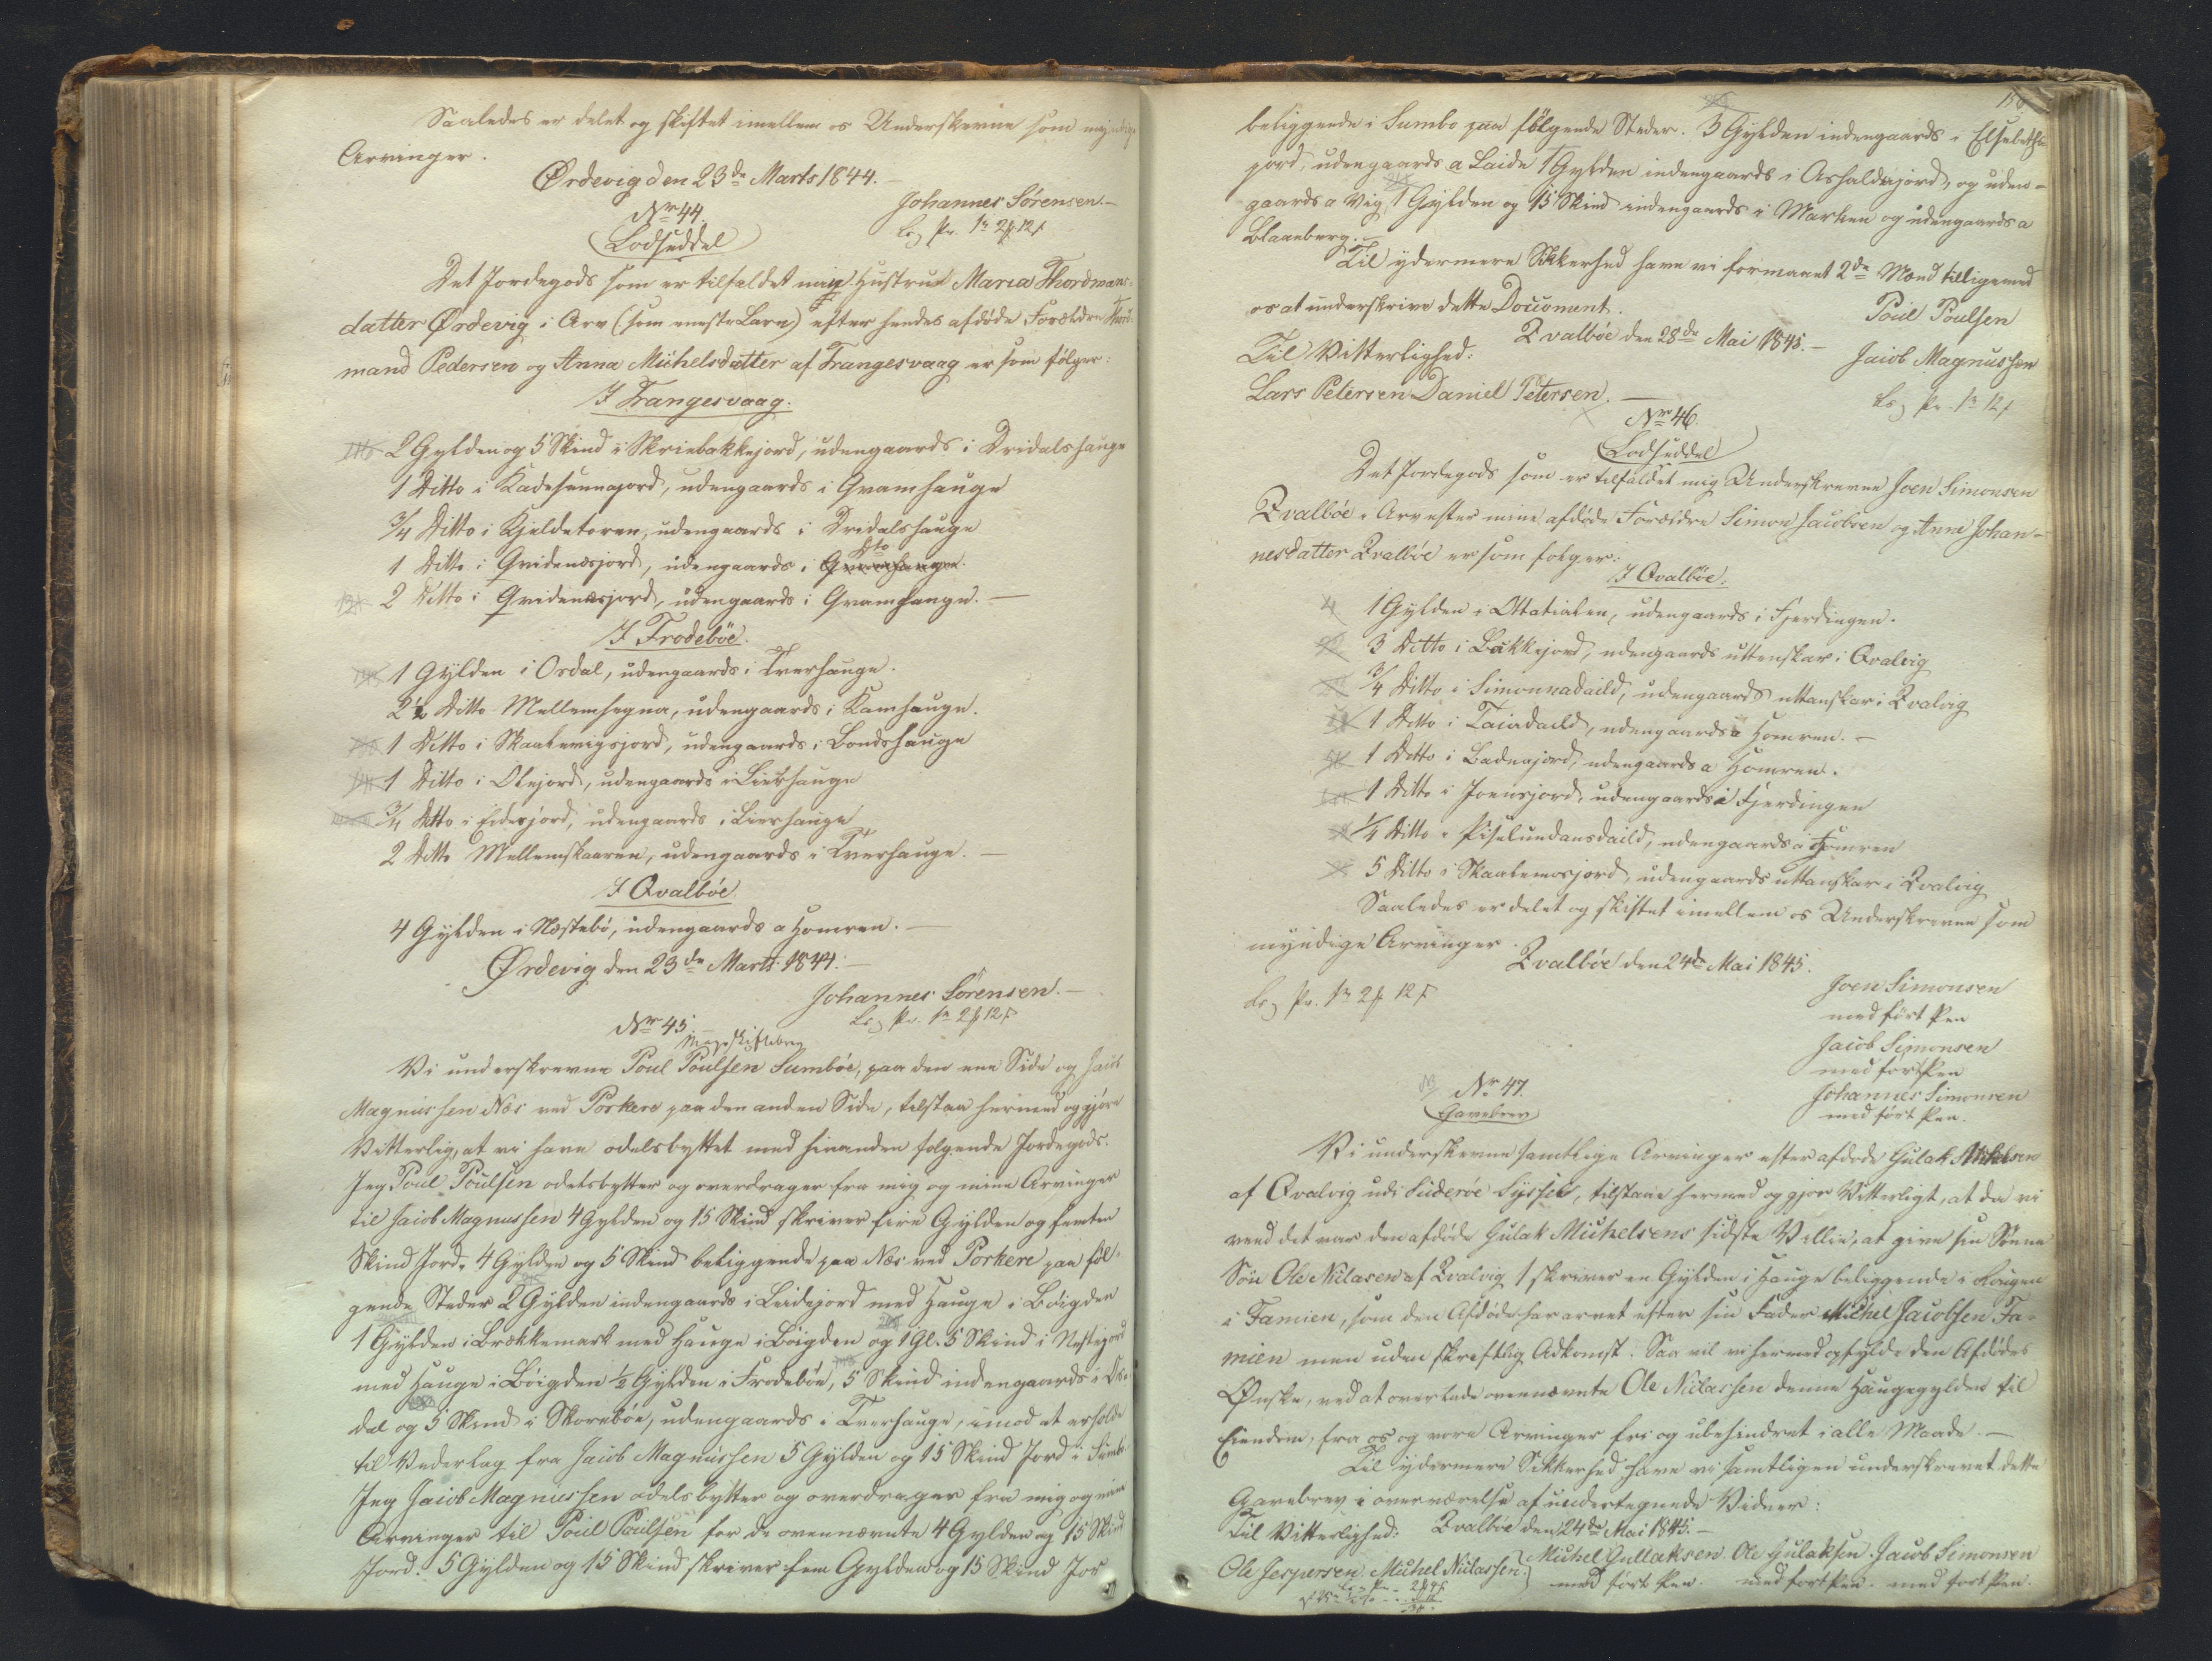 Saaledes er delet og skiftet imellem os Underskrevne som myndige
Arvinger.
Ørdevig den 23de Marts 1844.
Johannes Sørensen.
No 44.
Lodseddel
Det Jordegods som er tilfaldet min Hustrue Maria Thordmans-
datter Ørdevig i Arv (som eneste Barn) efter hendes afdøde Forældre Thord-
mand Pedersen og Anna Michelsdatter af Trangesvaag er som følger:
I Trangesvaag.
2 Gylden og 5 Skind i Skriebakkejord, udengaards i Dridalshauge
1 Ditto i udengaards i Gramhauge
3/4 Ditto i Kjeldetoren, udengaards i Dridalshauge
1 Ditto i Gridenæsjord, udengaards i Dto
2 Ditto i Gridenæsjord, udengaards i Gramhauge.
I Frodebøe.
1 Gylden i Ordal, udengaards i Tverhauge.
2 1/2 Ditto Mellemhegna, udengaards i Kamhauge.
1 Ditto i Skaalevigsjord, udengaards i Bondshauge
1 Ditto i Olejord, udengaards i Lierhauge
3/4 Ditto i Eidesjord, udengaards i Lierhauge
2 Ditto Mellemskaaren, udengaards i Tverhauge.
I Qvalbøe.
4 Gylden i Nestebø, udengaards a Homren.
Ørdevig den 23de Marts 1844.
Johannes Sørensen.
No 45.
Mageskiftebrev
Vi underskrevne Poul Poulsen Sumbøe, paa den ene Side og Jacob
Magnussen Næs ved Porkere paa den anden Side, tilstaa hermed og gjøre
Vitterlig, at vi have odelsbyttet med hinanden følgende Jordegods.
Jeg Poul Poulsen odelsbytter og overdrager fra mig og mine Arvinger
til Jacob Magnussen 4 Gylden og 15 Skind skriver fire Gylden og femten
Skind Jord. 4 Gylden og 5 Skind beliggende paa Næs ved Porkere paa føl-
gende Steder 2 Gylden indengaards i Leidejord med Hauge i Bøigden
1 Gylden i Brækkemark med Hauge i Bøigden og 1 Gl. 5 Skind i Nestejord
med Hauge i Bøigden 1/2 Gylden i Frodebøe, 5 Skind indengaards i Or-
dal og 5 Skind i Skorebøe, udengaards i Tverhauge, imod at erholde
til Vederlag fra Jacob Magnussen 5 Gylden og 15 Skind Jord i Sumbø.
Jeg Jacob Magnussen odelsbytter og overdrager fra mig og mine
Arvinger til Poul Poulsen for de ovennævnte 4 Gylden og 15 Skind
Jord. 5 Gylden og 15 Skind skriver fem Gylden og 15 Skind Jor
beliggende i Sumbo paa følgende Steder. 3 Gylden indengaards i Elsebeths-
jord, udengaards a Laide 1 Gylden indengaards i og uden-
gaards a Vig, 1 Gylden og 15 Skind indengaards i Marken og udengaards a
Blaaeberg.
Til ydermere Sikkerhed have vi formaaet 2de Mænd tilligemed
os at underskrive dette Document.
Qvalbøe den 28de Mai 1845.
Poul Poulsen
Til Vitterlighed:
Jacob Magnussen
Lars Petersen Daniel Petersen.
No 46.
Lodseddel
Det Jordegods som er tilfaldet mig Underskrevne Joen Simonsen
Qvalbøe i Arv efter mine afdøde Forældre Simon Jacobsen og Anne Johan-
nesdatter Qvalbøe er som følger:
I Qvalbøe.
1 Gylden i udengaards i Fjerdingen.
3 Ditto i Bakkejord, udengaards uttenskar i Qvalvig
3/4 Ditto i Simonnadaild, udengaards uttanskar i Qvalvig
1 Ditto i udengaards a Homren.
1 Ditto i udengaards a Homren.
1 Ditto i Joensjord, udengaards i Fjerdingen
1/4 Ditto i udengaards a Homren
5 Ditto i Skaalemosjord, udengaards uttanskar i Qvalvig
Saaledes er delet og skiftet imellem os Underskrevne som
myndige Arvinger.
Qvalbøe den 24de Mai 1845.
Joen Simonsen
med ført Pen
Jacob Simonsen
med ført Pen
Johannes Simonsen
med ført Pen.
No 47.
Gavebrev
Vi underskrevne samtlige Arvinger efter afdøde Gulak Michelsen
af Qvalvig udi Suderøe Syssel, tilstaae hermed og gjøre Vitterligt, at da vi
veed det var den afdøde Gulak Michelsens sidste Villie, at give sin Sønne
Søn Ole Niclasen af Qvalvig 1 skriver en Gylden i Hauge beliggende i
i Famien, som den Afdøde har arvet efter sin Fader Michel Jacobsen Fa-
mien men uden skriftlig Adkomst. Saa vil vi hermed opfylde den Afdødes
Ønske, ved at overlade ovennævnte Ole Niclassen denne Haugegylden til
Eiendom, fra os og vore Arvinger fri og ubehindret i alle Maade.
Til ydermere Sikkerhed have vi samtligen underskrevet dette
Gavebrev i overværelse af undertegnede Vidner:
Til Vitterlighed: Qvalbøe den 24de Mai 1845.
Ole Jespersen. Michel Niclassen. Michel Gullaksen. Ole Gulaksen. Jacob Simonsen
med ført Pen. med ført Pen. med ført Pen.